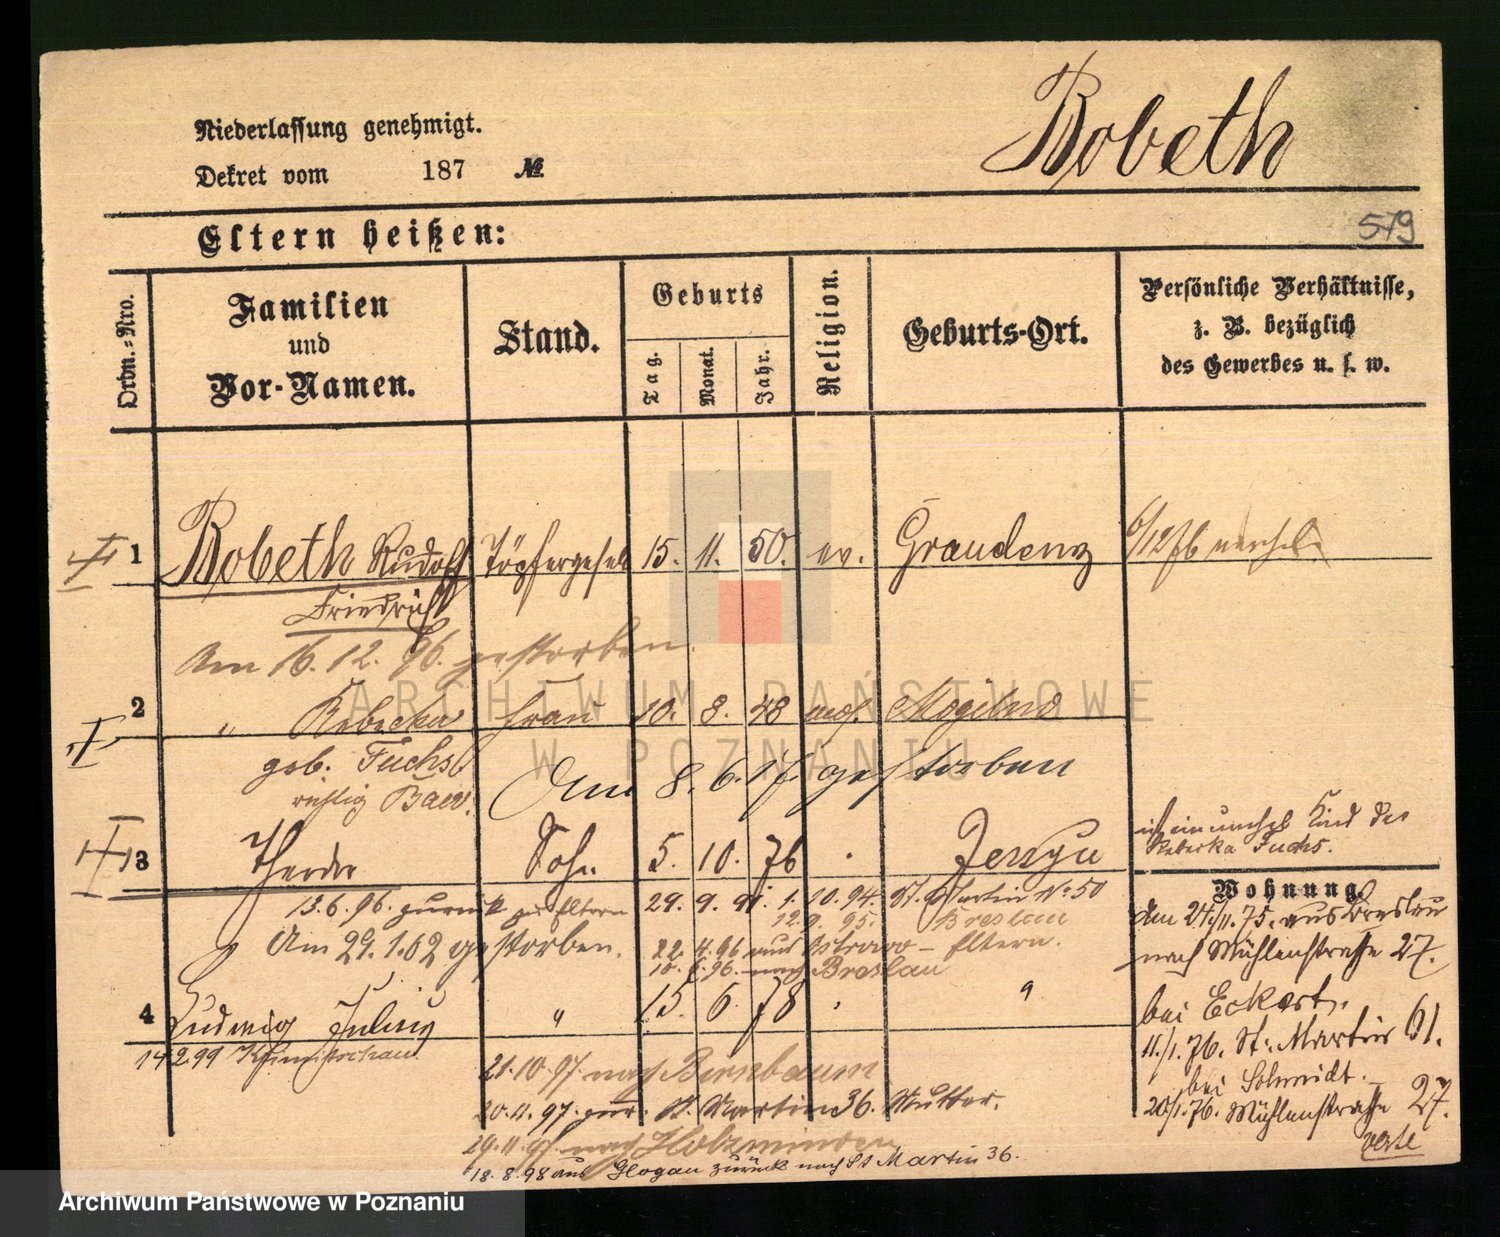 Robeth
Niederlassung genehmigt.
Dekret vom 187 №
Eltern heißen:
579
Ordn.-Nro.
Familien
und
Vor-Namen.
Stand.
Geburts
Tag.
Monat.
Jahr.
Religion.
Geburts-Ort.
Persönliche Verhältnisse,
z. B. bezüglich
des Gewerbes u. s. w.
1 Robeth Rudolf Töpfergesell 15. 11. 50. ev. Graudenz 6/12 76
Friedrich
Am 16. 12. 96. gestorben.
2 " Rebecka Frau 10. 8. 48 mos. Mogilno
geb. Fuchs
richtig Baer.
Am 8. 6. 17. gestorben
ist ein unehel Kind der
Rebecka Fuchs.
3 Theodor Sohn 5. 10. 76 Jersyce
13. 6. 96. zurück zu Eltern 29. 9. 1. 10. 94. St. Martin No 50
12. 9. 95. Breslau
Am 29. 1. 02 gestorben.
22. 4. 96 aus Ostrowo - Eltern.
10. 6. 96. nach Breslau
Wohnung
Am 27./11. 75. aus Breslau
nach Mühlenstrasse 27.
bei Eckert.
11./1. 76. St. Martin 61.
bei Schmidt.
20/1. 76. Mühlenstrasse 27.
verte
4 Ludwig Julius " 15. 6. 78 "
14 2 99
21. 10. 97. nach Birnbaum
20. 11. 97. zur. St. Martin 36. Mutter.
29. 11. 97. nach Holzminden
18. 8. 98 aus Glogau zurück nach St Martin 36.
ARCHIWUM PAŃSTWOWE
W POZNANIU
Archiwum Państwowe w Poznaniu